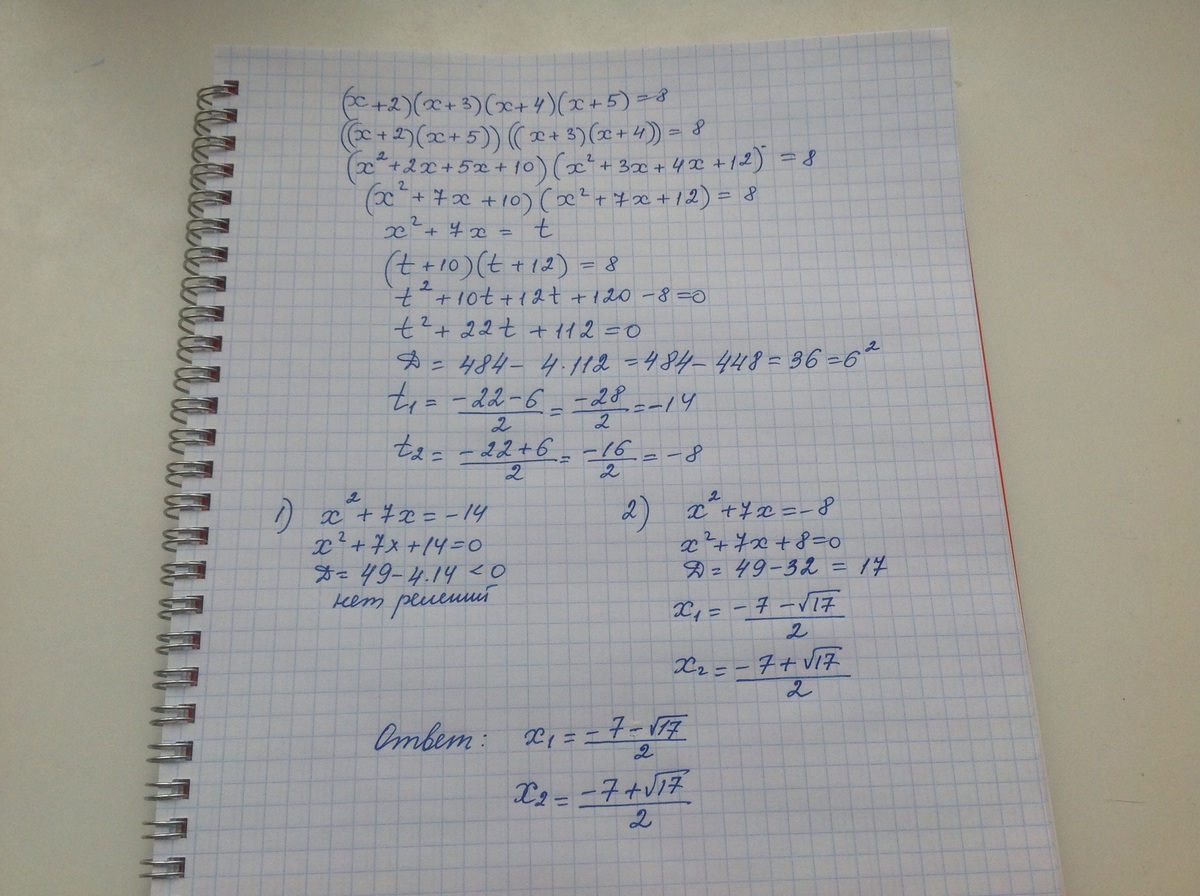 (x+2)(x+3)(x+4)(x+5)=8
((x+2)(x+5))((x+3)(x+4))=8
(x²+2x+5x+10)(x²+3x+4x+12)=8
(x²+7x+10)(x²+7x+12)=8
x²+7x=t
(t+10)(t+12)=8
t²+10t+12t+120-8=0
t²+22t+112=0
Д=484-4·112=484-448=36=6²
t₁=(-22-6)/2=-28/2=-14
t₂=(-22+6)/2=-16/2=-8
1) x²+7x=-14
x²+7x+14=0
Д=49-4.14<0
нет решений
2) x²+7x=-8
x²+7x+8=0
Д=49-32=17
x₁=(-7-√17)/2
x₂=(-7+√17)/2
Ответ: x₁=(-7-√17)/2
x₂=(-7+√17)/2